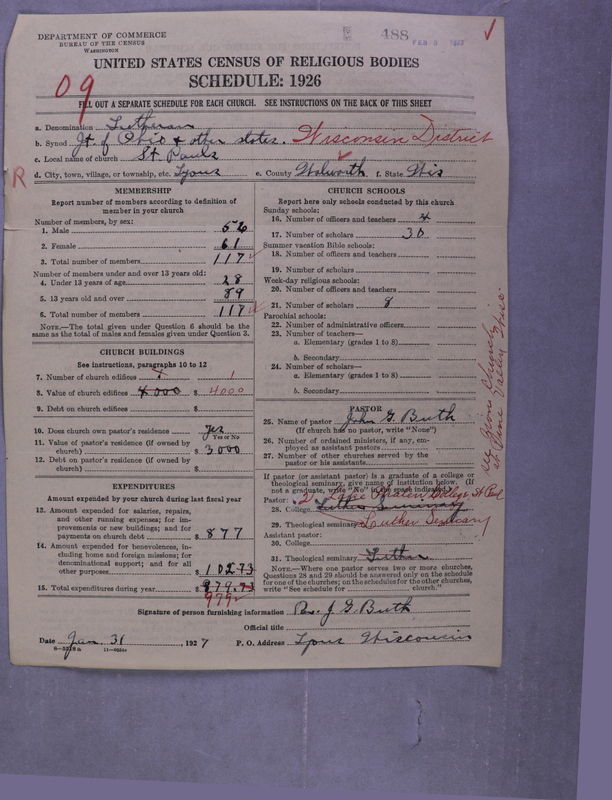 DEPARTMENT OF COMMERCE
BUREAU OF THE CENSUS
WASHINGTON
488
FEB 3 1927
09
UNITED STATES CENSUS OF RELIGIOUS BODIES
SCHEDULE: 1926
FILL OUT A SEPARATE SCHEDULE FOR EACH CHURCH. SEE INSTRUCTIONS ON THE BACK OF THIS SHEET
a. Denomination Lutheran
b. Synod Jt. of Ohio & other states. Wisconsin District
c. Local name of church St Pauls
R d. City, town, village, or township, etc. Lyons e. County Walworth f. State Wis
MEMBERSHIP
Report number of members according to definition of member in your church
Number of members, by sex:
1. Male 56
2. Female 61
3. Total number of members 117
Number of members under and over 13 years old:
4. Under 13 years of age 28
5. 13 years old and over 89
6. Total number of members 117
NOTE.—The total given under Question 6 should be the same as the total of males and females given under Question 3.
CHURCH BUILDINGS
See instructions, paragraphs 10 to 12
7. Number of church edifices 1
8. Value of church edifices 4000 $ 4000
9. Debt on church edifices $
10. Does church own pastor's residence? yes
Yes or No
11. Value of pastor's residence (if owned by church) $ 3000
12. Debt on pastor's residence (if owned by church) $
EXPENDITURES
Amount expended by your church during last fiscal year
13. Amount expended for salaries, repairs, and other running expenses; for improvements or new buildings; and for payments on church debt $ 877
14. Amount expended for benevolences, including home and foreign missions; for denominational support; and for all other purposes $ 102.73
15. Total expenditures during year $ 979.73
979
CHURCH SCHOOLS
Report here only schools conducted by this church
Sunday schools:
16. Number of officers and teachers 4
17. Number of scholars 30
Summer vacation Bible schools:
18. Number of officers and teachers
19. Number of scholars
Week-day religious schools:
20. Number of officers and teachers
21. Number of scholars 8
Parochial schools:
22. Number of administrative officers
23. Number of teachers—
a. Elementary (grades 1 to 8)
b. Secondary
24. Number of scholars—
a. Elementary (grades 1 to 8)
b. Secondary
PASTOR
25. Name of pastor John G Buth
(If church has no pastor, write "None")
26. Number of ordained ministers, if any, employed as assistant pastors
27. Number of other churches served by the pastor or his assistants
If pastor (or assistant pastor) is a graduate of a college or theological seminary, give name of institution below. (If not a graduate, write "No" in the space indicated)
Pastor:
28. College Luther Seminary College St Paul
29. Theological seminary Luther Seminary
Assistant pastor:
30. College
31. Theological seminary Luther
NOTE.—Where one pastor serves two or more churches, Questions 28 and 29 should be answered only on the schedule for one of the churches; on the schedules for the other churches, write "See schedule for church."
Signature of person furnishing information Rev. J G Buth
Official title
Date Jan. 31, 1927 P. O. Address Lyons Wisconsin
11—9064